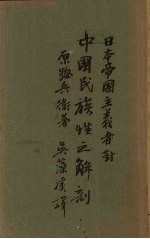 日本帝國主義者討
中國民族性之解剖
原惣兵衛著 吳藻溪譯